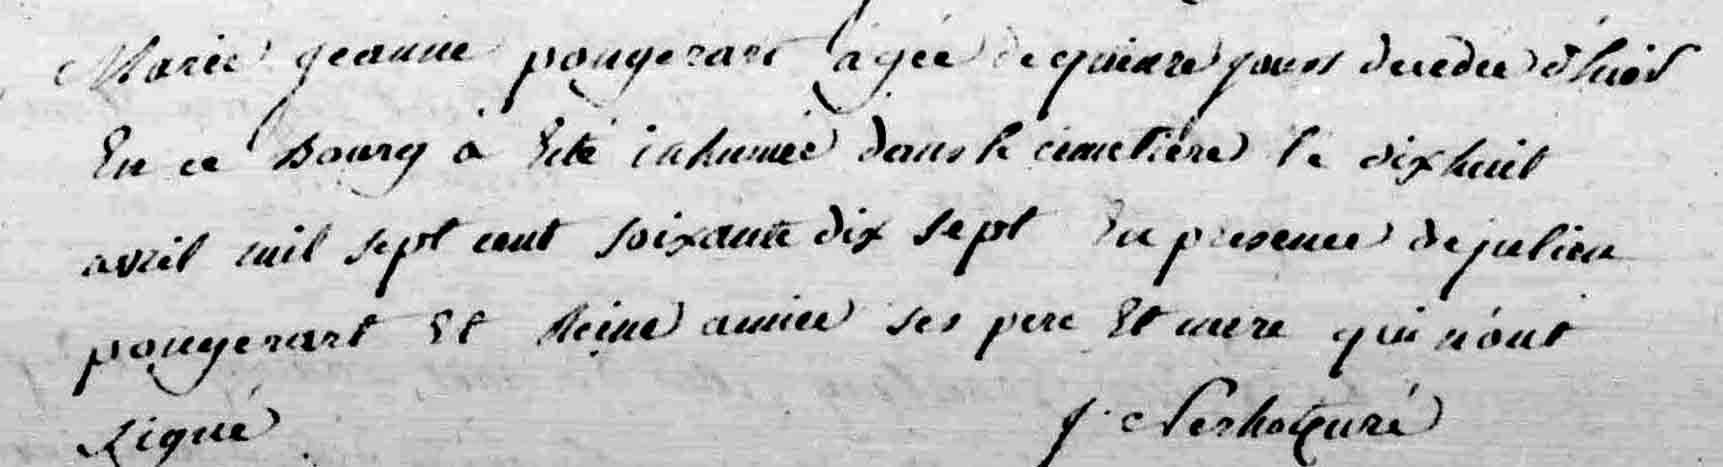 Marie jeanne pougerart agée de quinze jours decedée d'hier
En ce Bourg à Eté inhumée dans le cimetière le dix huit
avril mil sept cent soixante dix sept En presence de julien
pougerart Et Reine amice ses pere Et mere qui n'ont
signé j. curé